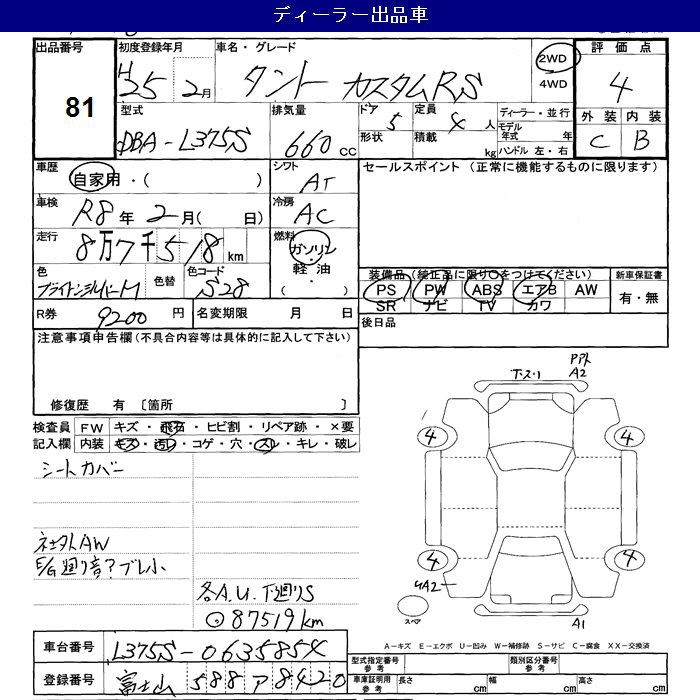 ディーラー出品車
出品番号 81
初度登録年月 H25年 2月
車名・グレード タント カスタムRS
2WD 4WD
評価点 4
外装 内装
C B
型式 DBA-L375S
排気量 660 cc
ドア 5 形状
定員 4 人 積載 kg
ディーラー・並行
モデル年式 年
ハンドル 左・右
車歴 自家用・( )
シフト AT
セールスポイント (正常に機能するものに限ります)
車検 R8年 2月( 日)
冷房 AC
走行 8万7千518km
燃料 ガソリン・軽油・( )
色 ブライトシルバーM
色替
色コード S28
装備品(純正品に限り○をつけてください)
新車保証書
PS PW ABS エアB AW
有・無
SR ナビ TV カワ
R券 9200 円
名変期限 月 日
後日品
注意事項申告欄(不具合内容等は具体的に記入して下さい)
修復歴 有 〔箇所 〕
検査員 FW キズ・飛石・ヒビ割・リペア跡・×要
記入欄 内装 キズ・汚れ・コゲ・穴・スレ・キレ・破レ
シートカバー
社外AW
E/G廻り音?ブレ小
各A.U. 下廻りS
87519km
下ス・リ
A2
4 4
4 4
UA2
スペア
A1
A-キズ E-エクボ U-凹み W-補修跡 S-サビ C-腐食 XX-交換済
車台番号 L375S-0635854
登録番号 富士山 588 ア 8420
型式指定番号 参考
類別区分番号 参考
車庫証明用 参考 長さ cm 幅 cm 高さ cm